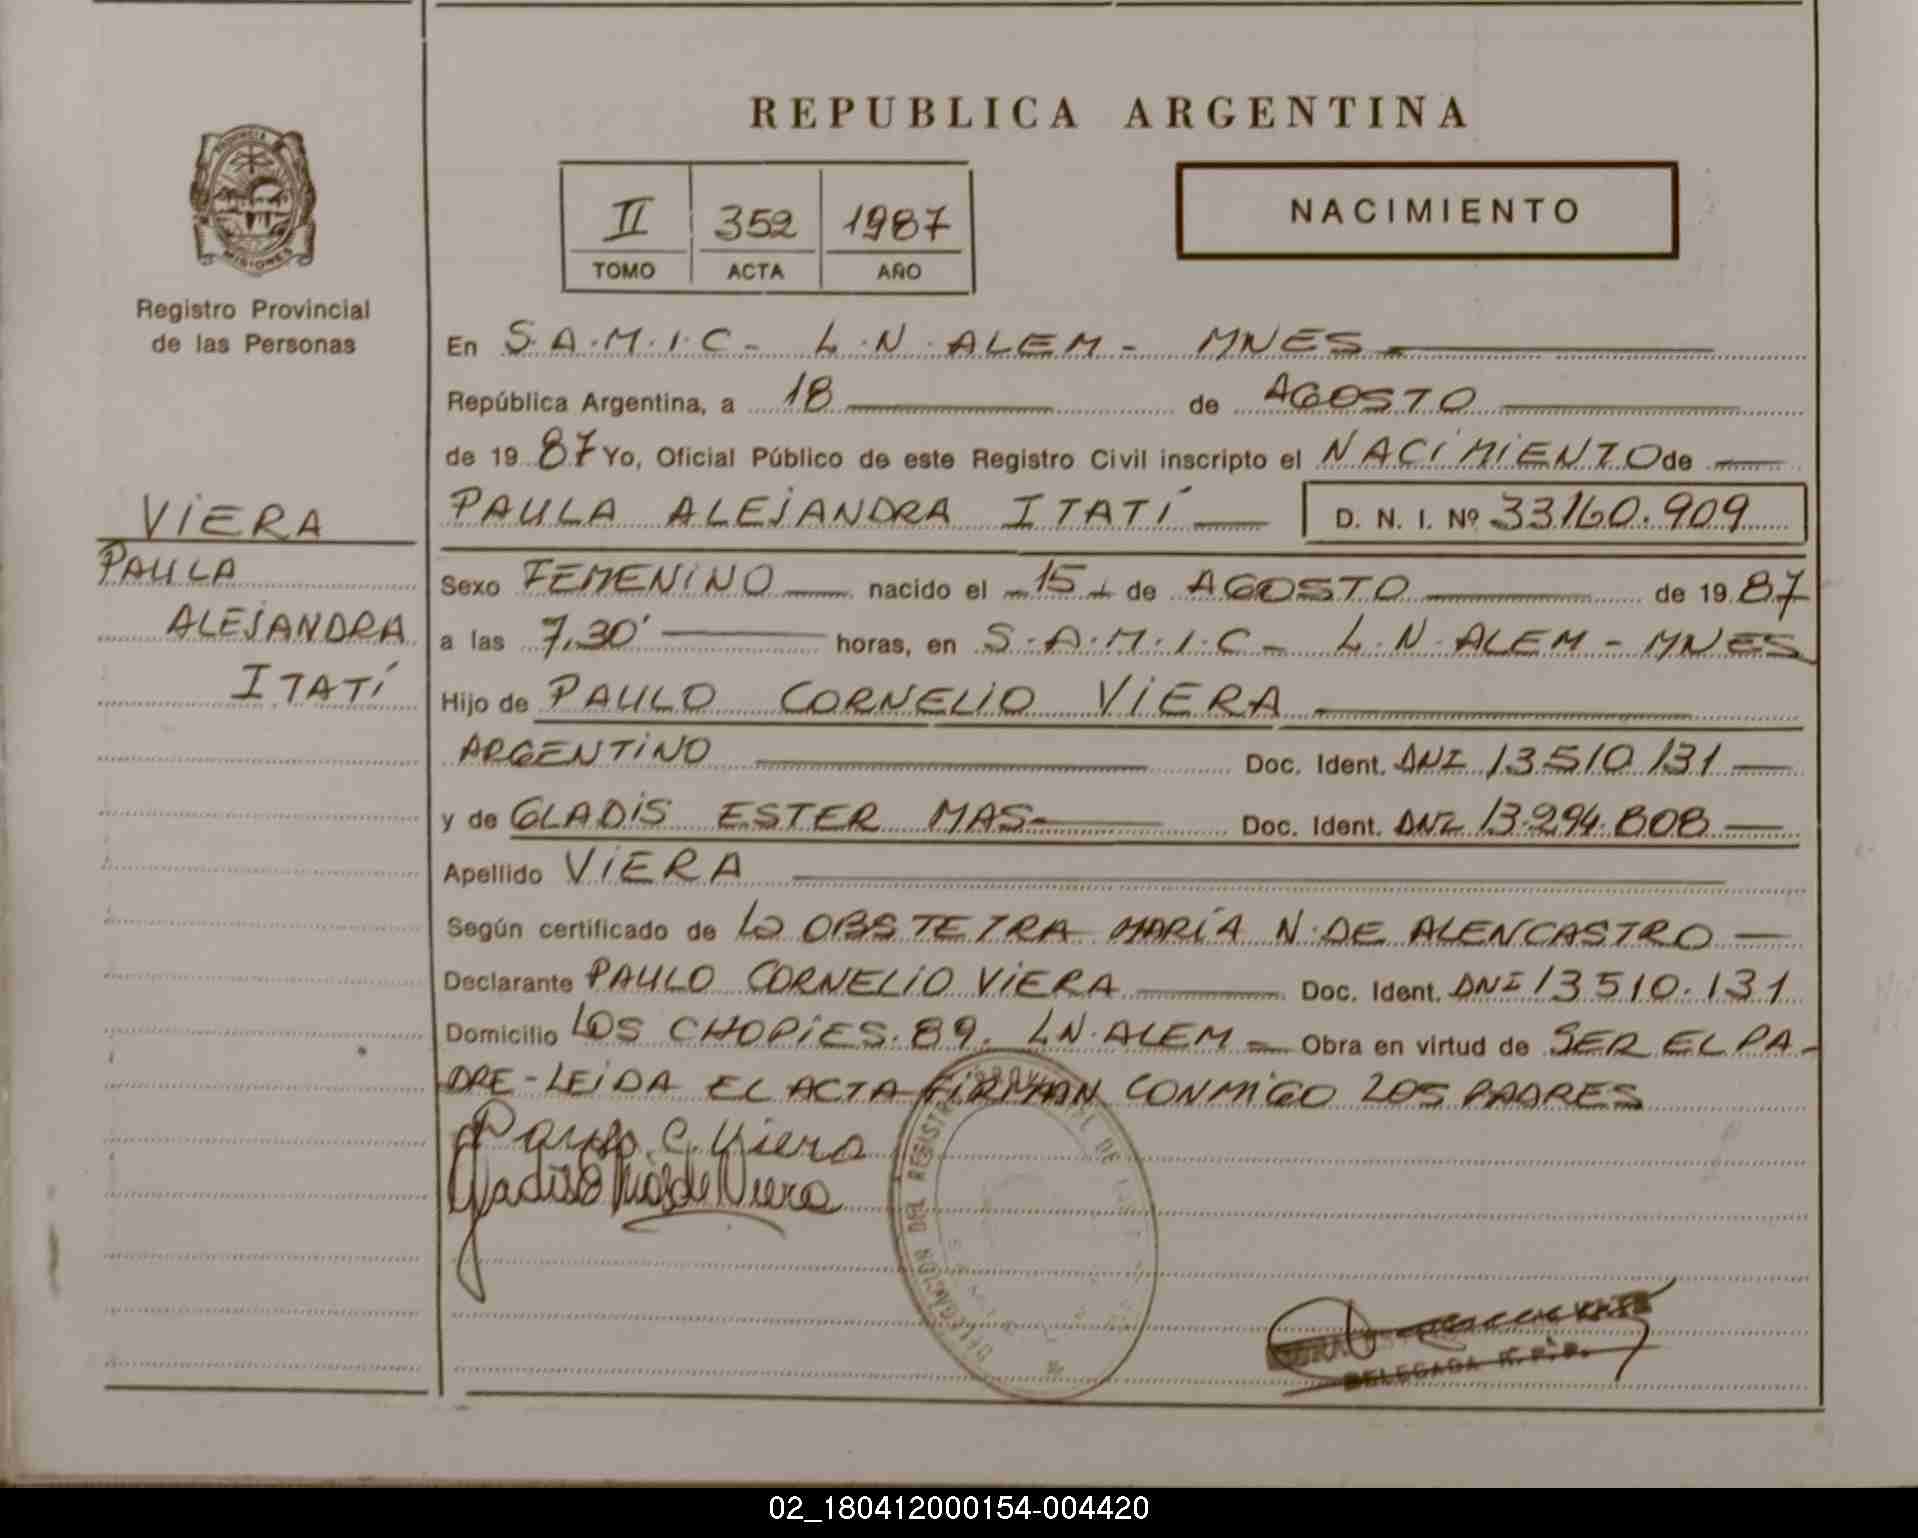 REPUBLICA ARGENTINA
PROVINCIA
MISIONES
Registro Provincial
de las Personas
II 352 1987
TOMO ACTA AÑO
NACIMIENTO
En S.A.M.I.C - L.N. ALEM - MNES
República Argentina, a 18 de AGOSTO
de 1987 Yo, Oficial Público de este Registro Civil inscripto el NACIMIENTO de
PAULA ALEJANDRA ITATÍ D. N. I. Nº 33160.909
VIERA
PAULA
ALEJANDRA
ITATÍ
Sexo FEMENINO nacido el 15 de AGOSTO de 1987
a las 7,30' horas, en S.A.M.I.C - L.N. ALEM - MNES
Hijo de PAULO CORNELIO VIERA
ARGENTINO Doc. Ident. DNI 13510131
y de GLADIS ESTER MAS Doc. Ident. DNI 13.294.808
Apellido VIERA
Según certificado de La OBSTETRA MARÍA N. DE ALENCASTRO
Declarante PAULO CORNELIO VIERA Doc. Ident. DNI 13510.131
Domicilio LOS CHOPIES. 89. LN. ALEM Obra en virtud de SER EL PA-
DRE - LEIDA EL ACTA FIRMAN CONMIGO LOS PADRES
Paulo C. Viera
Gladis E Mas de Viera
DELEGACION DEL REGISTRO PROVINCIAL DE
DELEGADA R.P.P.
02_180412000154-004420